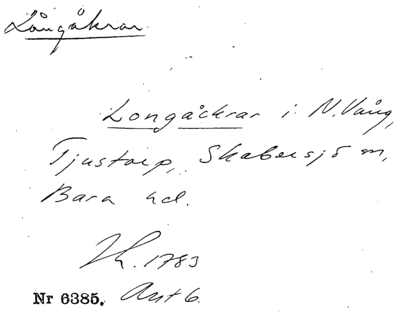 Långåkrar
Longåckrar i N. Vång,
Tjustorp, Skabersjö sn,
Bara hd.
Lh. 1783
Nr 6385. Akt 6.